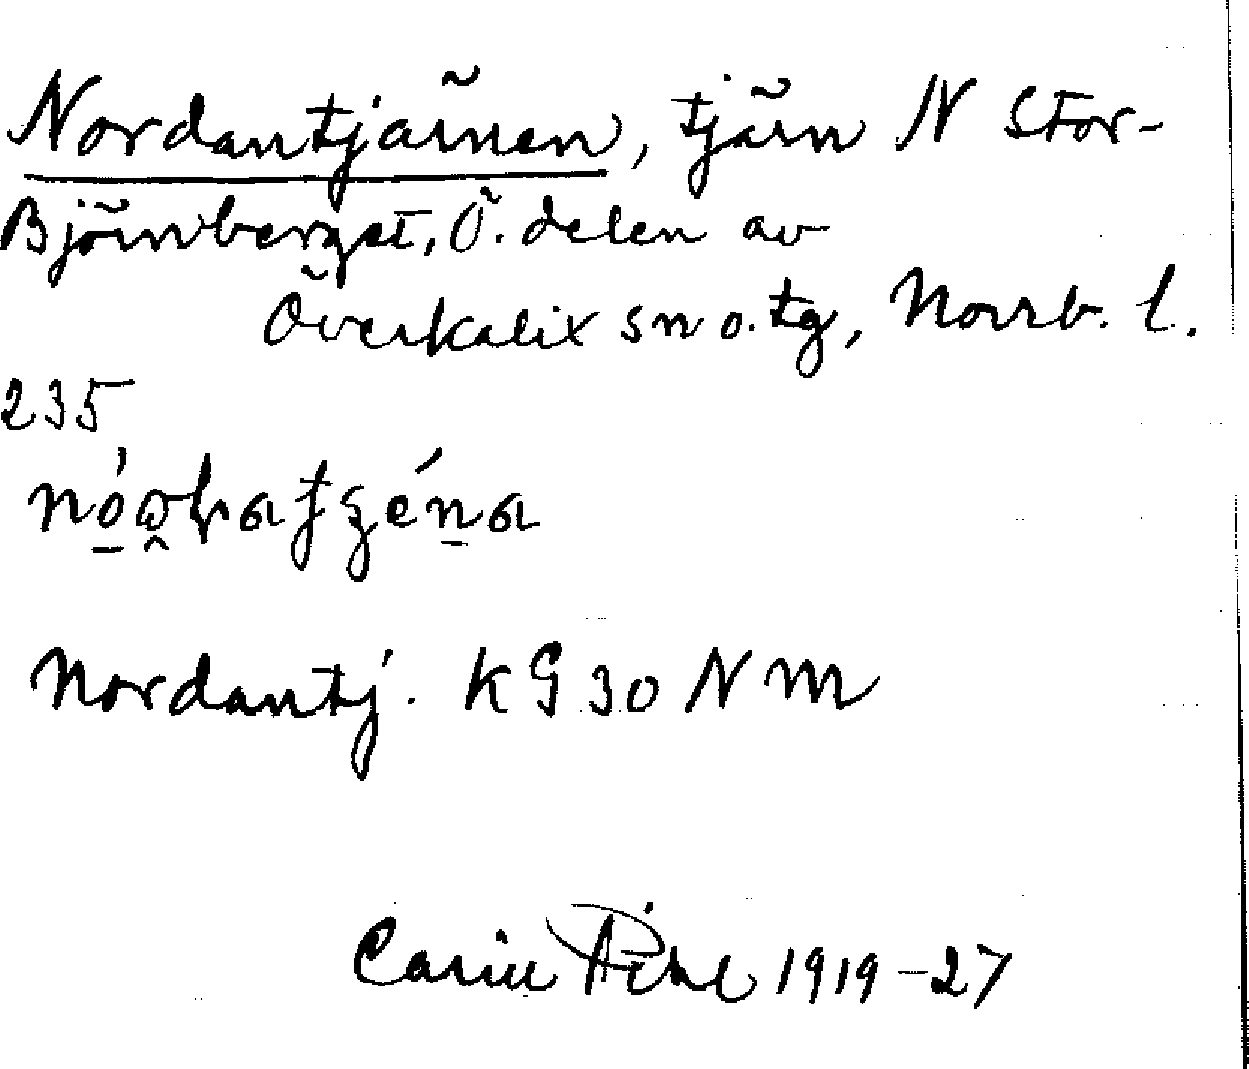 Nordantjärnen, tjärn N Stor-
Björnberget, Ö. delen av
Överkalix sn o. tg, Norrb. l.
235
Nordantj. KG 30 NM
Carin Pihl 1919-27